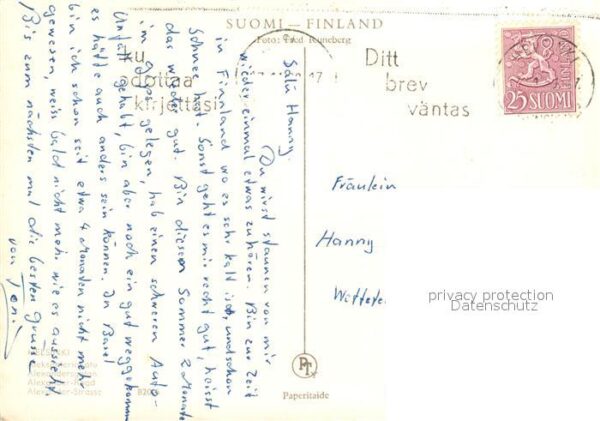 SUOMI — FINLAND
Foto: Fred Runeberg
ku
odottaa
kirjettäsi
Ditt
brev
väntas
25 SUOMI
Salü Hanny,
Du wirst staunen von mir
wieder einmal etwas zu hören. Bin zur Zeit
in Finland wo es sehr kalt ist, und schon
Schnee hat. Sonst geht es mir recht gut, heisst
das wieder gut. Bin diesen Sommer 2 Monate
im gelegen, hab einen schweren Auto-
Unfall gehabt, bin aber noch ein gut weggekommen
es hätte auch anders sein können. In Basel
bin ich schon seit etwa 4 Monaten nicht mehr
gewesen, weiss bald nicht mehr wie es aussieht
Bis zum nächsten mal die besten Grüsse
von Toni
Fräulein
Hanny
privacy protection
Datenschutz
HELSINKI
Alexander-Strasse
820
PT
Paperitaide